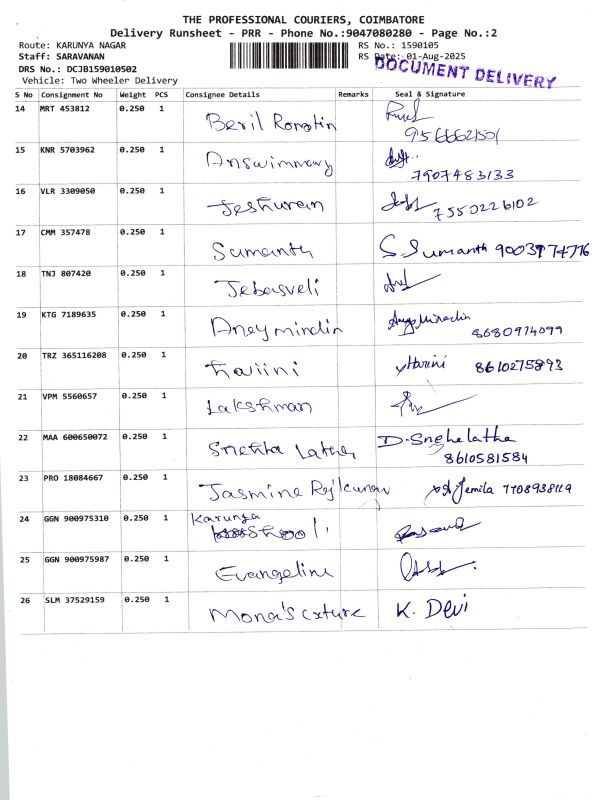 THE PROFESSIONAL COURIERS, COIMBATORE
Delivery Runsheet - PRR - Phone No.:9047080280 - Page No.:2
Route: KARUNYA NAGAR RS No.: 1590105
Staff: SARAVANAN RS Date: 01-Aug-2025
DRS No.: DCJB159010502 DOCUMENT DELIVERY
Vehicle: Two Wheeler Delivery
S No Consignment No Weight PCS Consignee Details Remarks Seal & Signature
14 MRT 453812 0.250 1 Beril Ronstin
9566621501
15 KNR 5703962 0.250 1
7907483133
16 VLR 3309050 0.250 1 Jeshuran 7550226102
17 CMM 357478 0.250 1 Sumanth S. Sumanth
18 TNJ 807420 0.250 1 Jebasveli
19 KTG 7189635 0.250 1
8680974099
20 TRZ 365116208 0.250 1 Harini 8610275893
21 VPM 5560657 0.250 1 Lakshman
22 MAA 600650072 0.250 1 Snehta Latha D. Snehalatha
8610581584
23 PRO 18084667 0.250 1 Jasmine Jemila 7708938119
24 GGN 900975310 0.250 1 Karunya
School
25 GGN 900975987 0.250 1 Evangeline
26 SLM 37529159 0.250 1 K. Devi